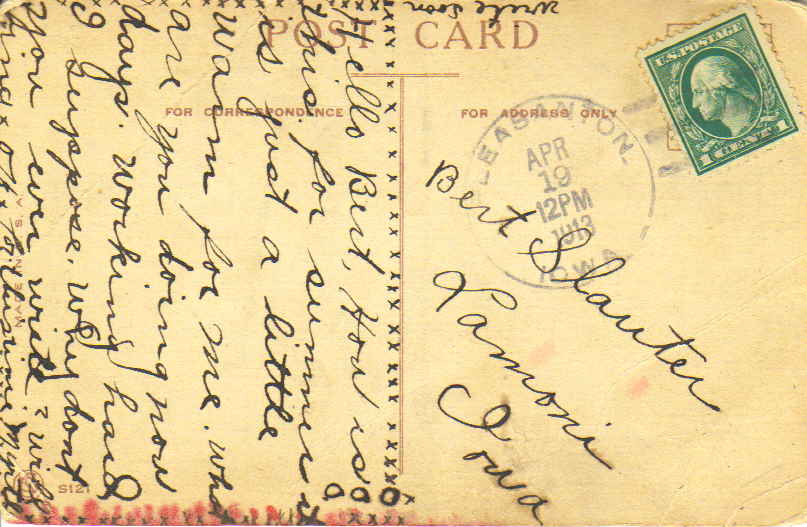 POST CARD
FOR CORRESPONDENCE
FOR ADDRESS ONLY
U.S. POSTAGE
1 CENT 1
PLEASANTON,
APR
19
12PM
1913
IOWA
Bert Slauter
Lamoni
Iowa
write soon
Hello Bert, How is
this for summer
is just a little
warm for me. What
are you doing now
days. Working hard
I suppose. Why dont
you ever write? will
MADE IN U.S.A.
S121